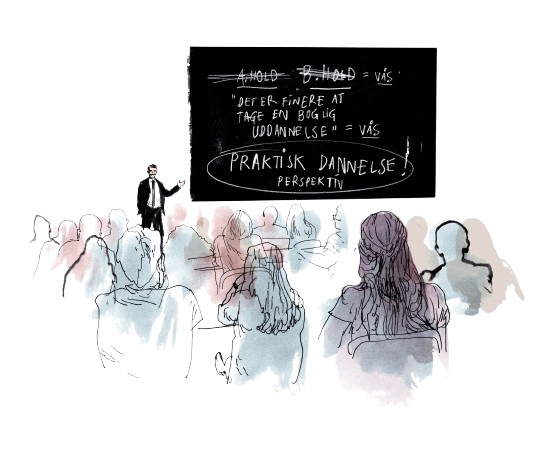 A.HOLD B.HOLD = VÅS
"DET ER FINERE AT
TAGE EN BOGLIG
UDDANNELSE" = VÅS
PRAKTISK DANNELSE!
PERSPEKTIV